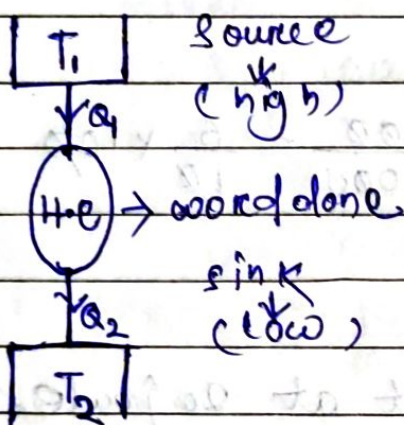 T₁ source
(high)
Q₁
H.e → work done
sink
Q₂ (low)
T₂